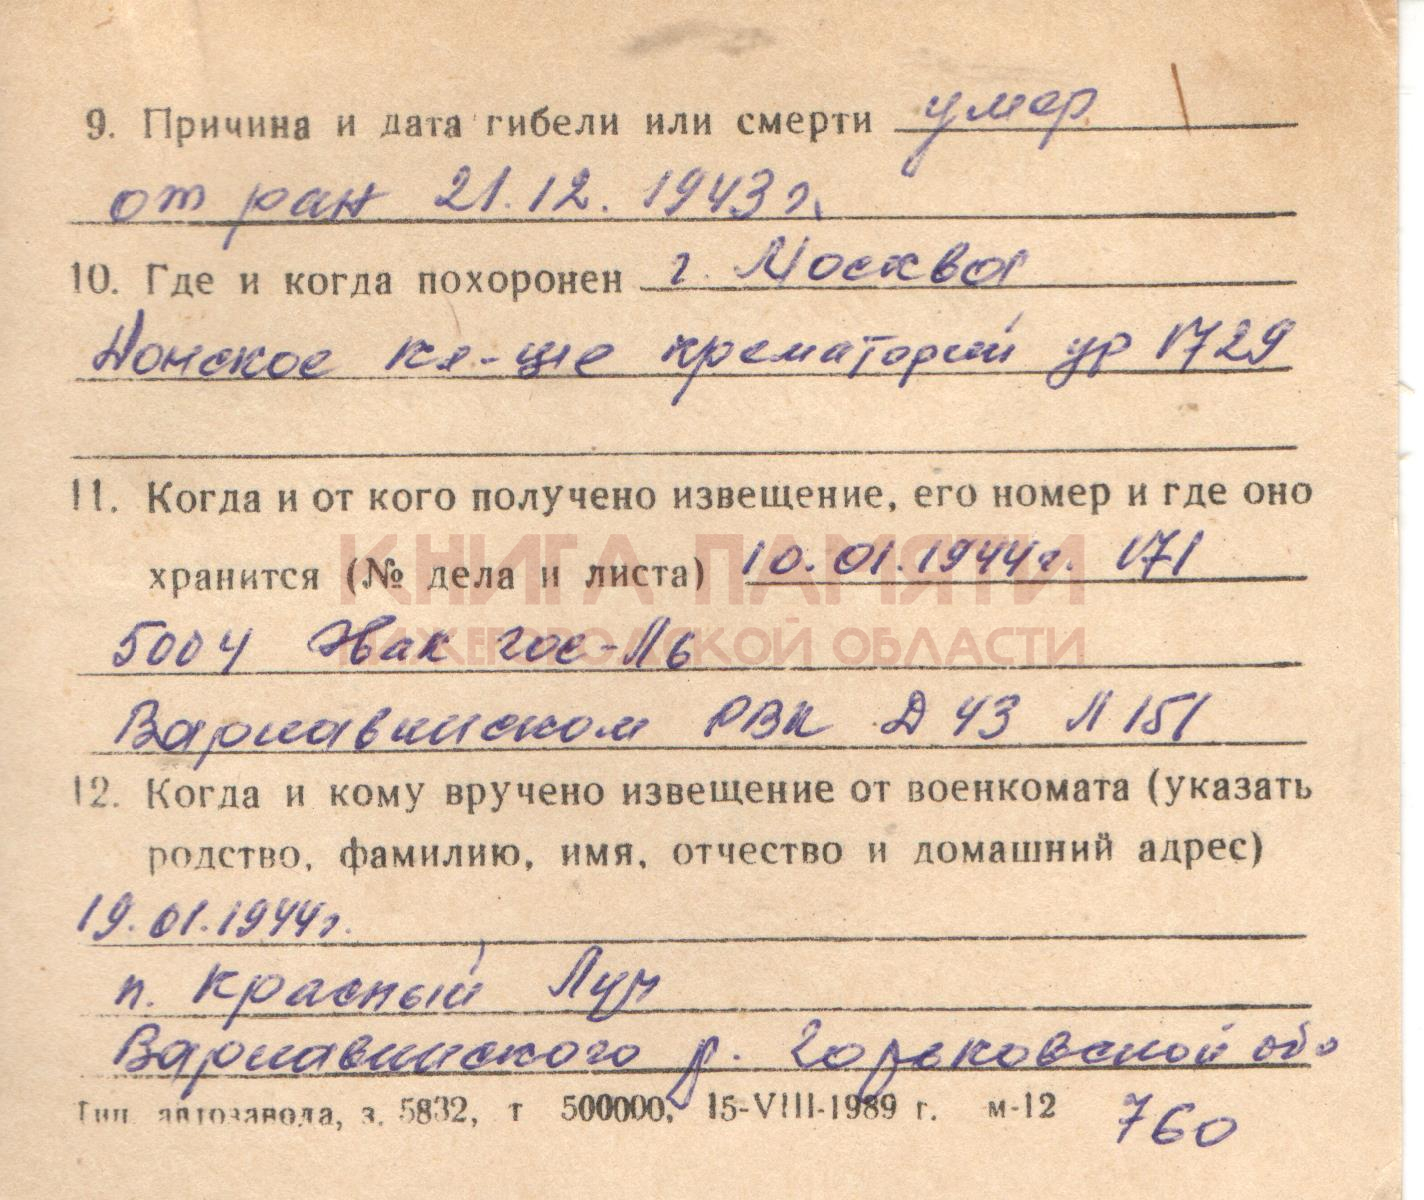 9. Причина и дата гибели или смерти умер
от ран 21.12.1943г.
10. Где и когда похоронен г. Москва
Донское кл-ще крематорий ур 1729
11. Когда и от кого получено извещение, его номер и где оно
хранится (№ дела и листа) 10.01.1944г. 171
КНИГА ПАМЯТИ
5004 Эвак гос-ль
НИЖЕГОРОДСКОЙ ОБЛАСТИ
Варнавинском РВК Д 43 Л 151
12. Когда и кому вручено извещение от военкомата (указать
родство, фамилию, имя, отчество и домашний адрес)
19.01.1944г.
п. Красный Луч
Варнавинского р. Горьковской обл
Тип. автозавода, з. 5832, т 500000, 15-VIII-1989 г. м-12
760